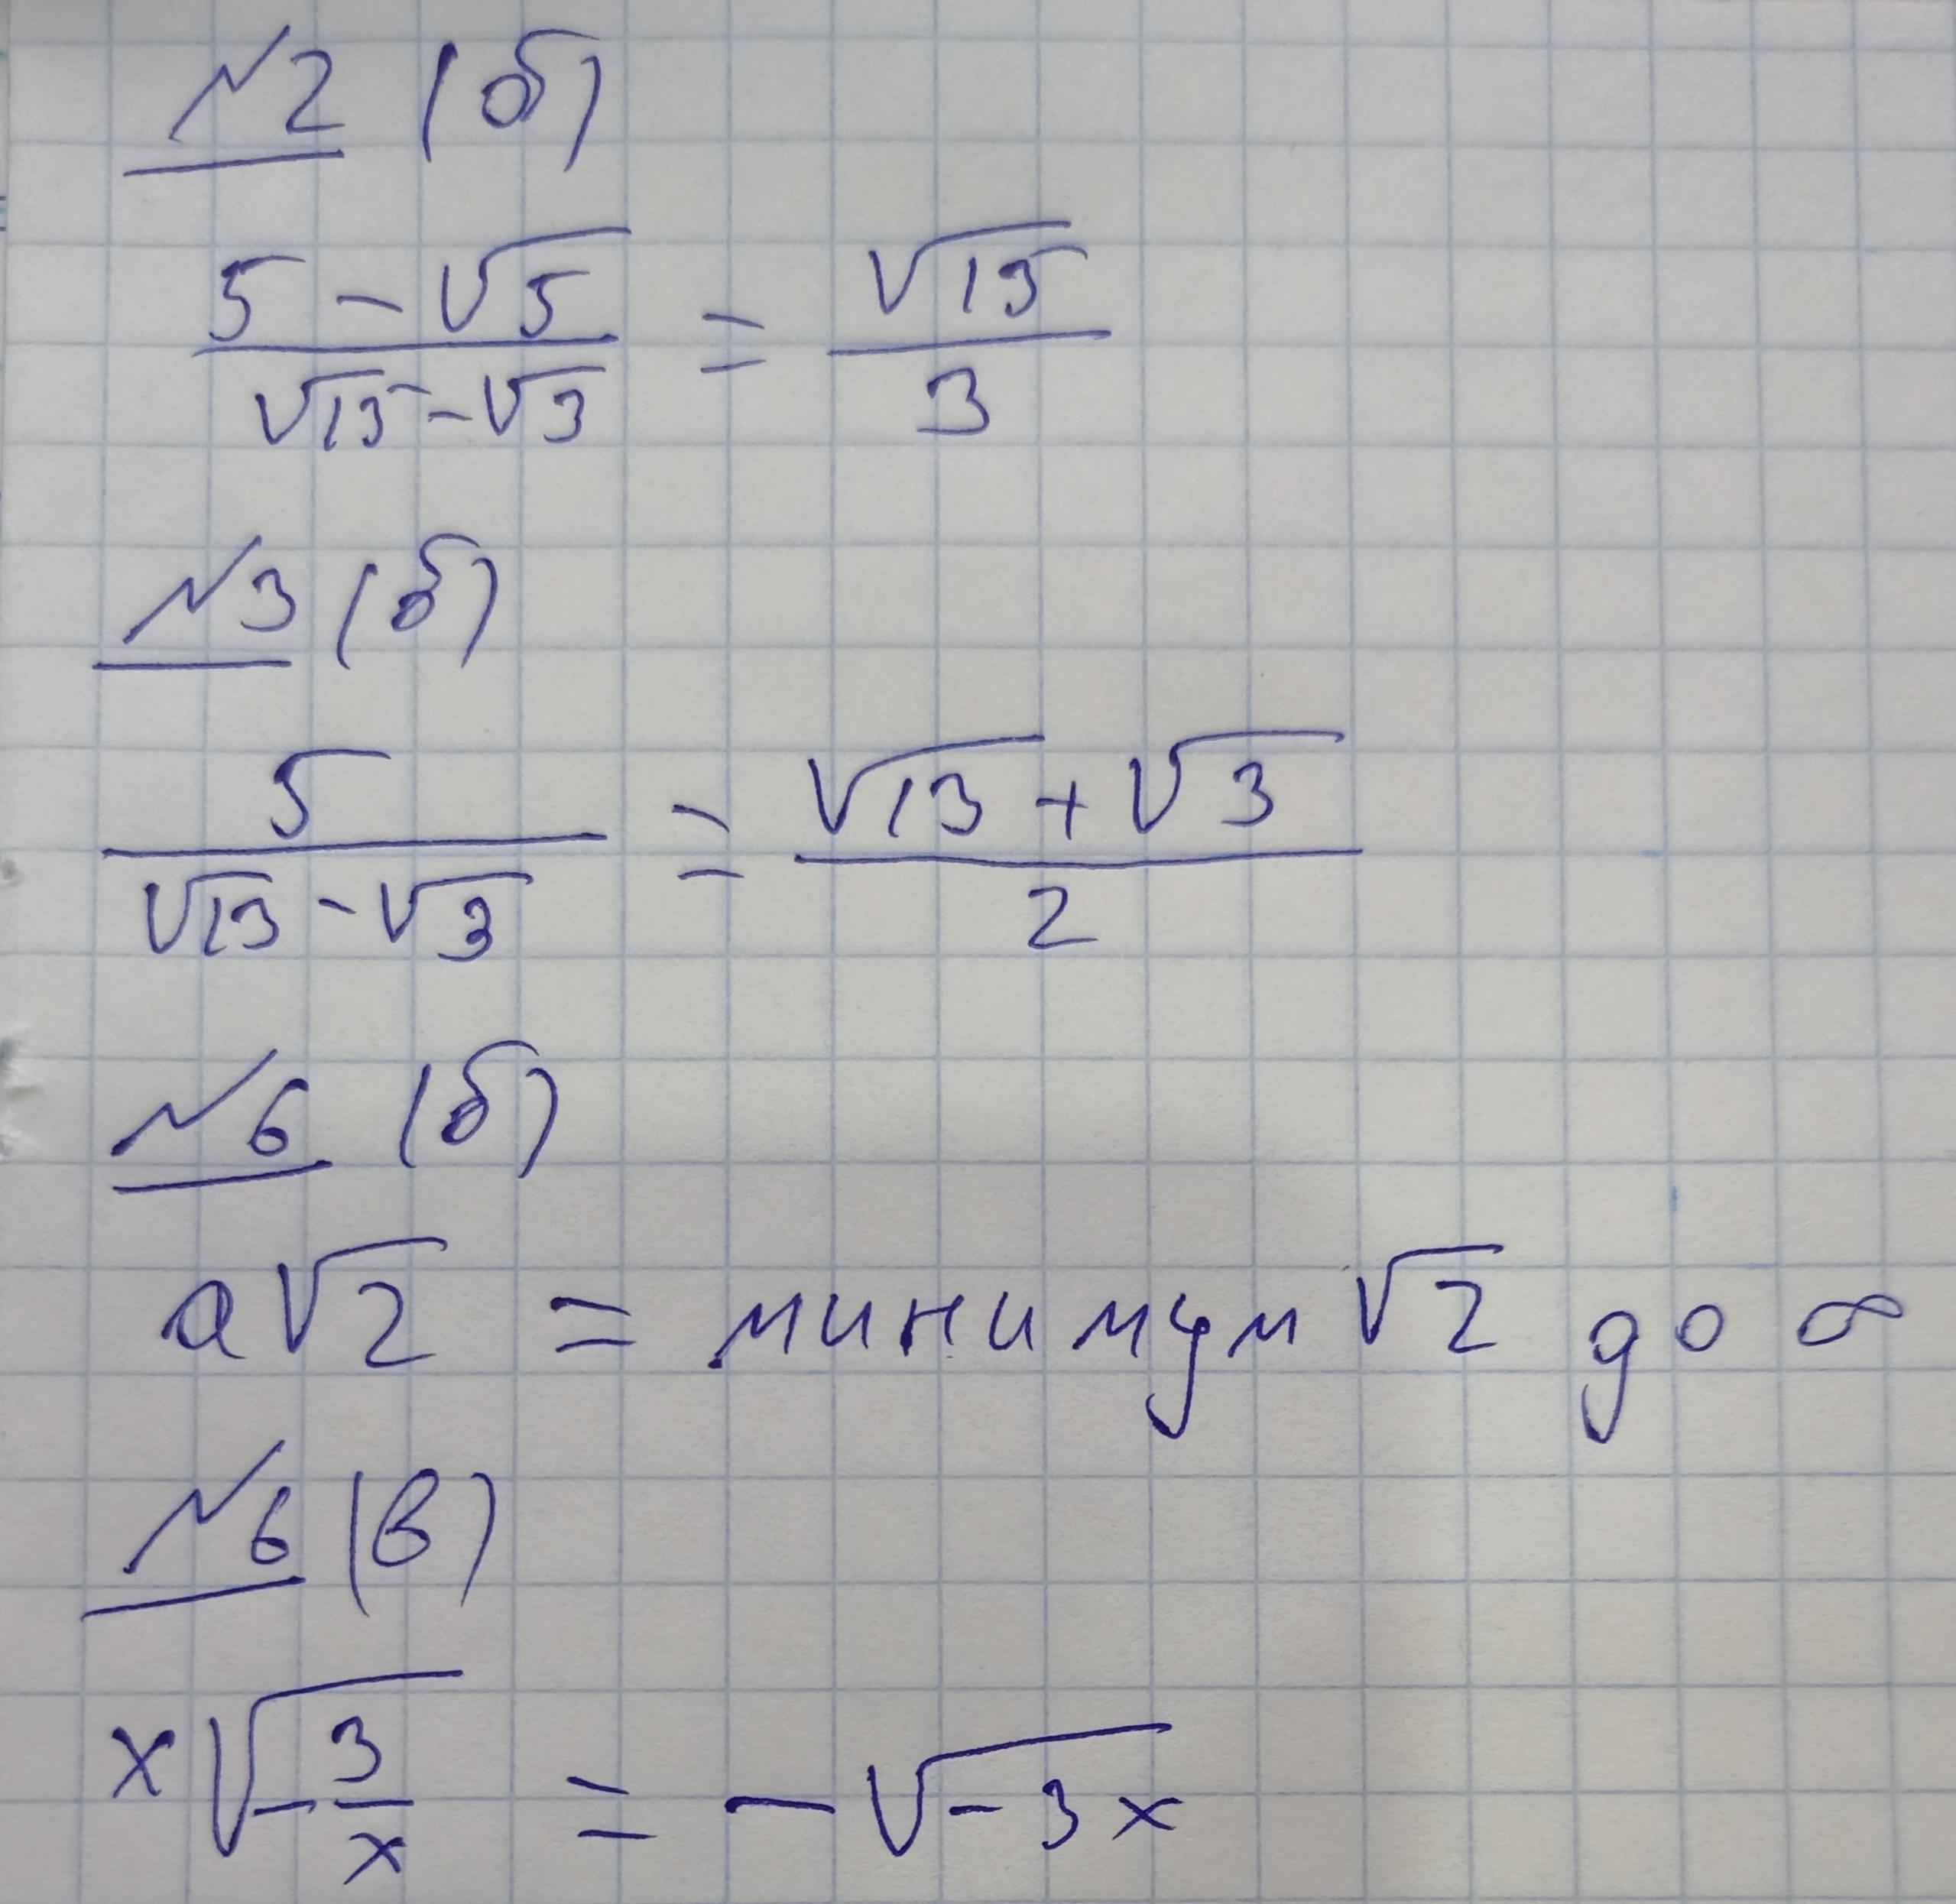 №2 (б)
(5 - √5)/(√15 - √3) = √15/3
№3 (б)
5/(√13 - √3) = (√13 + √3)/2
№6 (б)
a√2 = минимум √2 до ∞
№6 (в)
x√(-3/x) = -√(-3x)